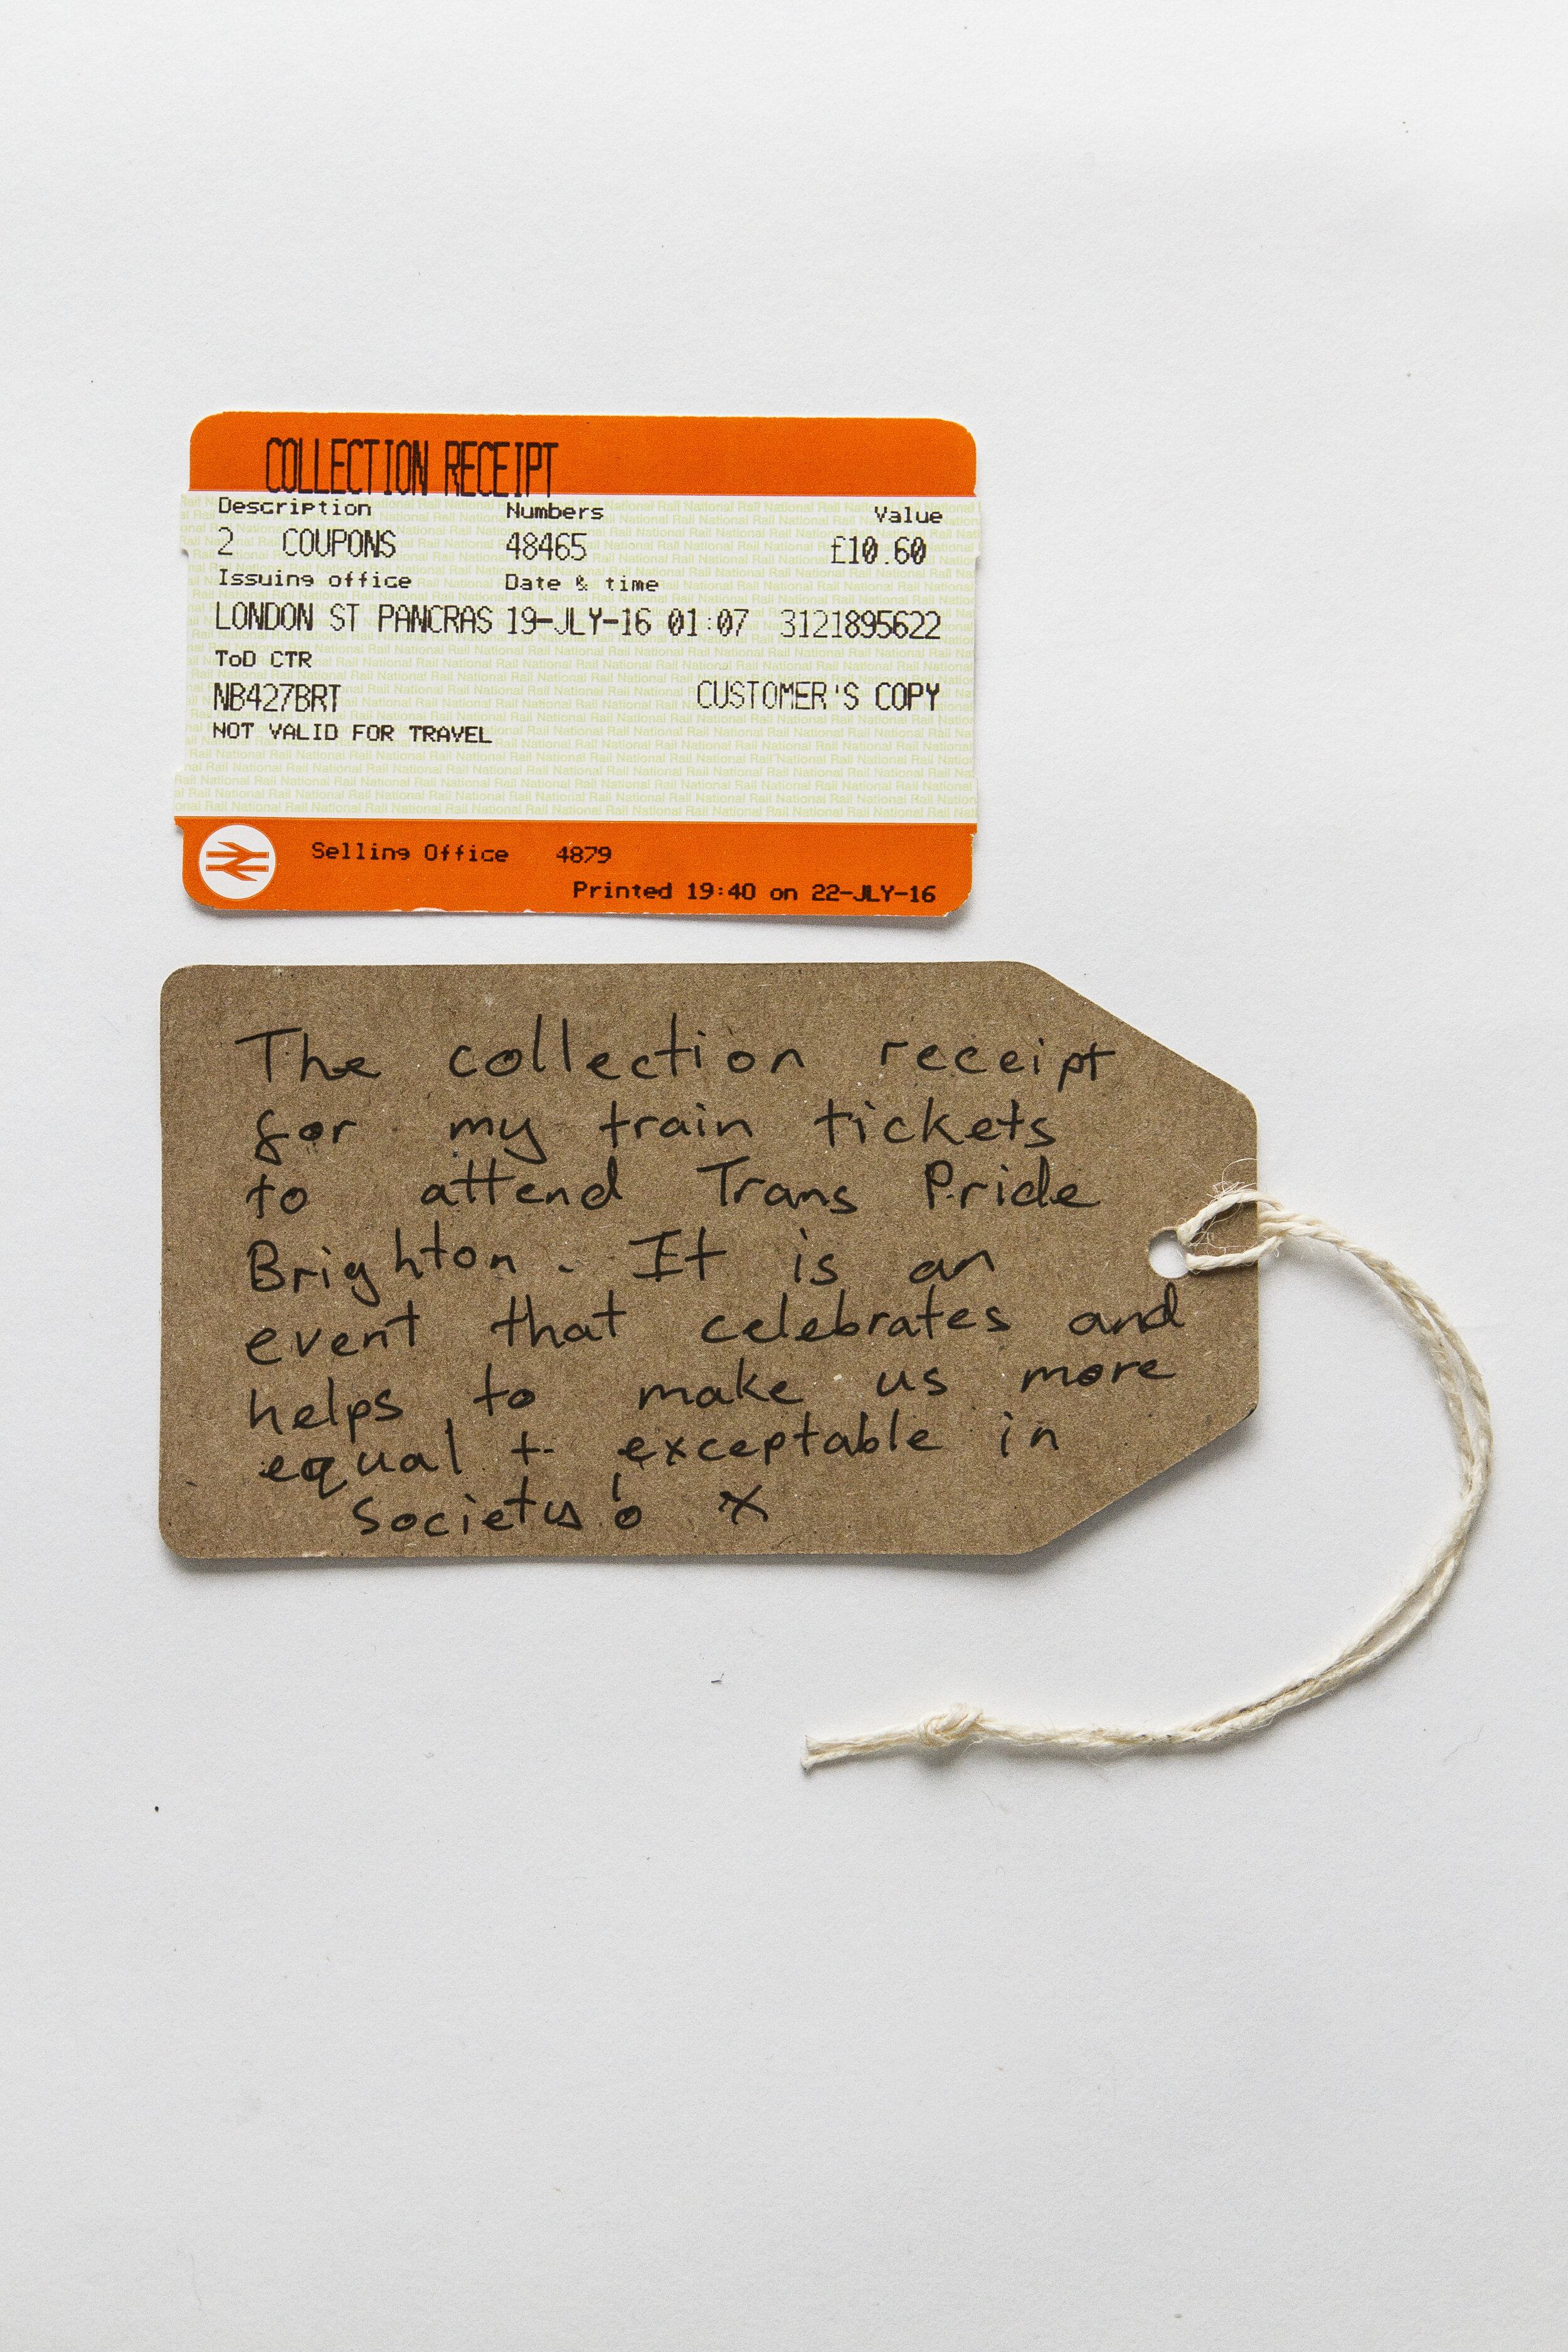 COLLECTION RECEIPT
Description Numbers Value
2 COUPONS 48465 £10.60
Issuing office Date & time
LONDON ST PANCRAS 19-JLY-16 01:07 3121895622
ToD CTR
NB427BRT CUSTOMER'S COPY
NOT VALID FOR TRAVEL
Selling Office 4879
Printed 19:40 on 22-JLY-16
The collection receipt
for my train tickets
to attend Trans Pride
Brighton. It is an
event that celebrates and
helps to make us more
equal + exceptable in
Society! x